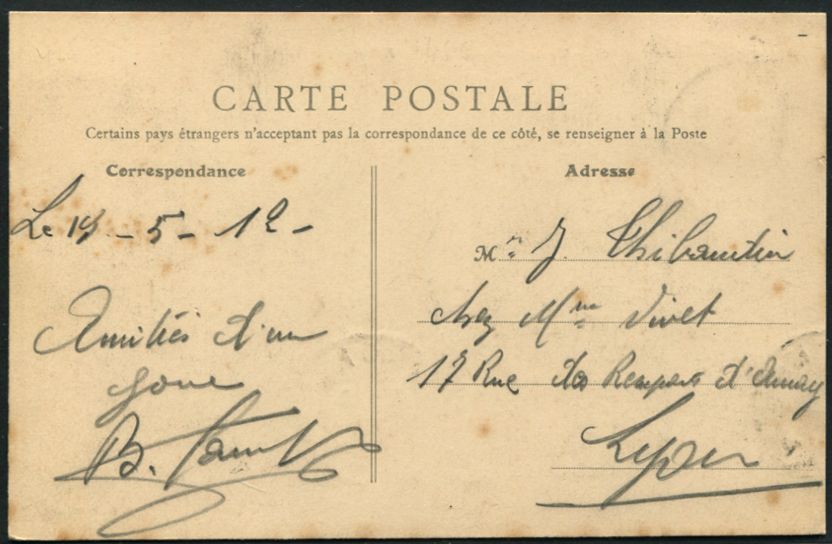 CARTE POSTALE
Certains pays étrangers n'acceptant pas la correspondance de ce côté, se renseigner à la Poste
Correspondance
Le 19 - 5 - 12 -
Amitiés d'un
B.
Adresse
Mr J. Thibaudin
chez Mme Vivet
17 Rue des Remparts d'Ainay
Lyon